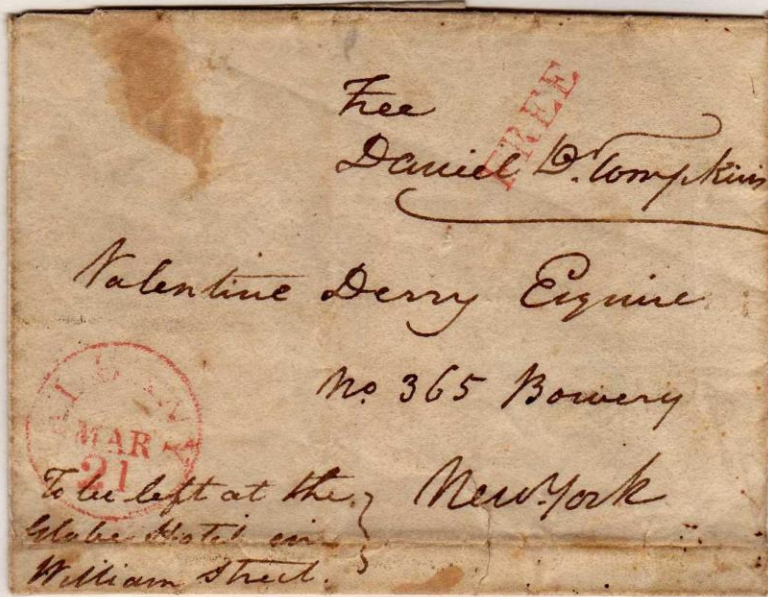 Free
FREE
Daniel D. Tompkins
Valentine Derry Esquire
No. 365 Bowery
New-York
ALBANY
MAR
21
To be left at the
Globe Hotel in
William Street.